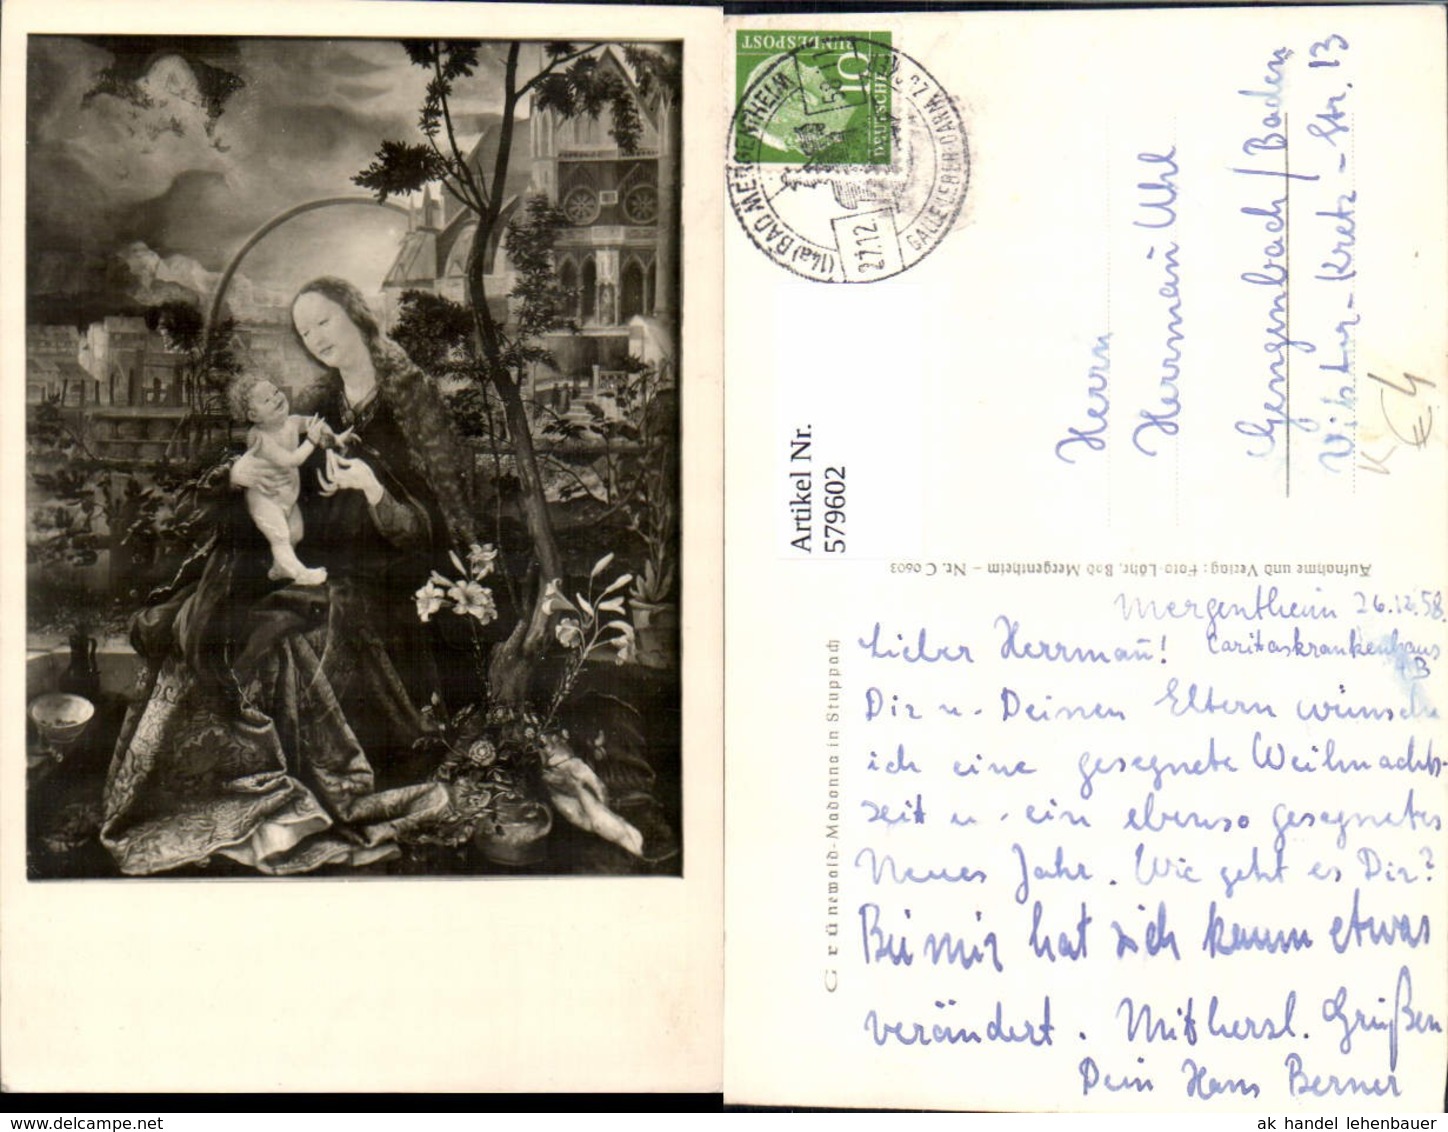 DEUTSCHE
BUNDESPOST
10
(14a) BAD MERGENTHEIM
27.12.
GALLE-LEBER-DARM-ZUCKER
Herrn
Hermann Uhl
Gengenbach / Baden
Viktor-Kretz-Str. 13
K €4
Artikel Nr.
579602
Aufnahme und Verlag: Foto-Löhr, Bad Mergentheim – Nr. C 0603
Grünewald-Madonna in Stuppach
Mergentheim 26.12.58.
Caritaskrankenhaus
Lieber Herrmann!
Dir u. Deinen Eltern wünsche
ich eine gesegnete Weihnachts-
zeit u. ein ebenso gesegnetes
Neues Jahr. Wie geht es Dir?
Bei mir hat sich kaum etwas
verändert. Mit herzl. Grüßen
Dein Hans Berner
ak handel lehenbauer